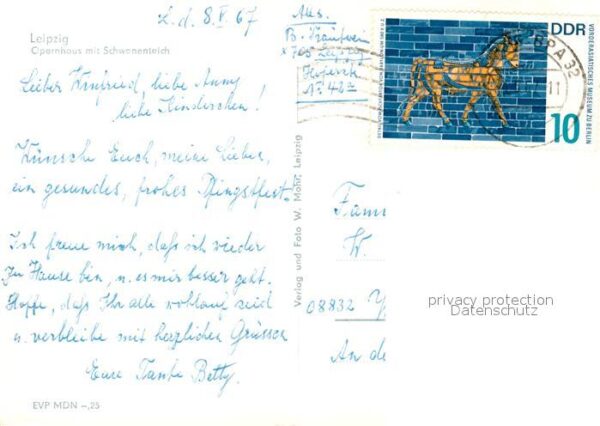 L. d. 8. V. 67
Leipzig
Opernhaus mit Schwanenteich
Lieber Winfried, liebe Anny
liebe Kinderchen!
Wünsche Euch, meine Lieben,
ein gesundes, frohes Pfingstfest.
Ich freue mich, daß ich wieder
zu Hause bin, u. es mir besser geht.
Hoffe, daß Ihr alle wohlauf seid
u. verbleibe mit herzlichen Grüssen
Eure Tante Betty.
EVP MDN -,25
Verlag und Foto W. Mohr, Leipzig
Abs.
B.
705 Leipzig
Nr. 42
DDR
VORDERASIATISCHES MUSEUM ZU BERLIN
10
Fam
W.
08832
An de
privacy protection
Datenschutz